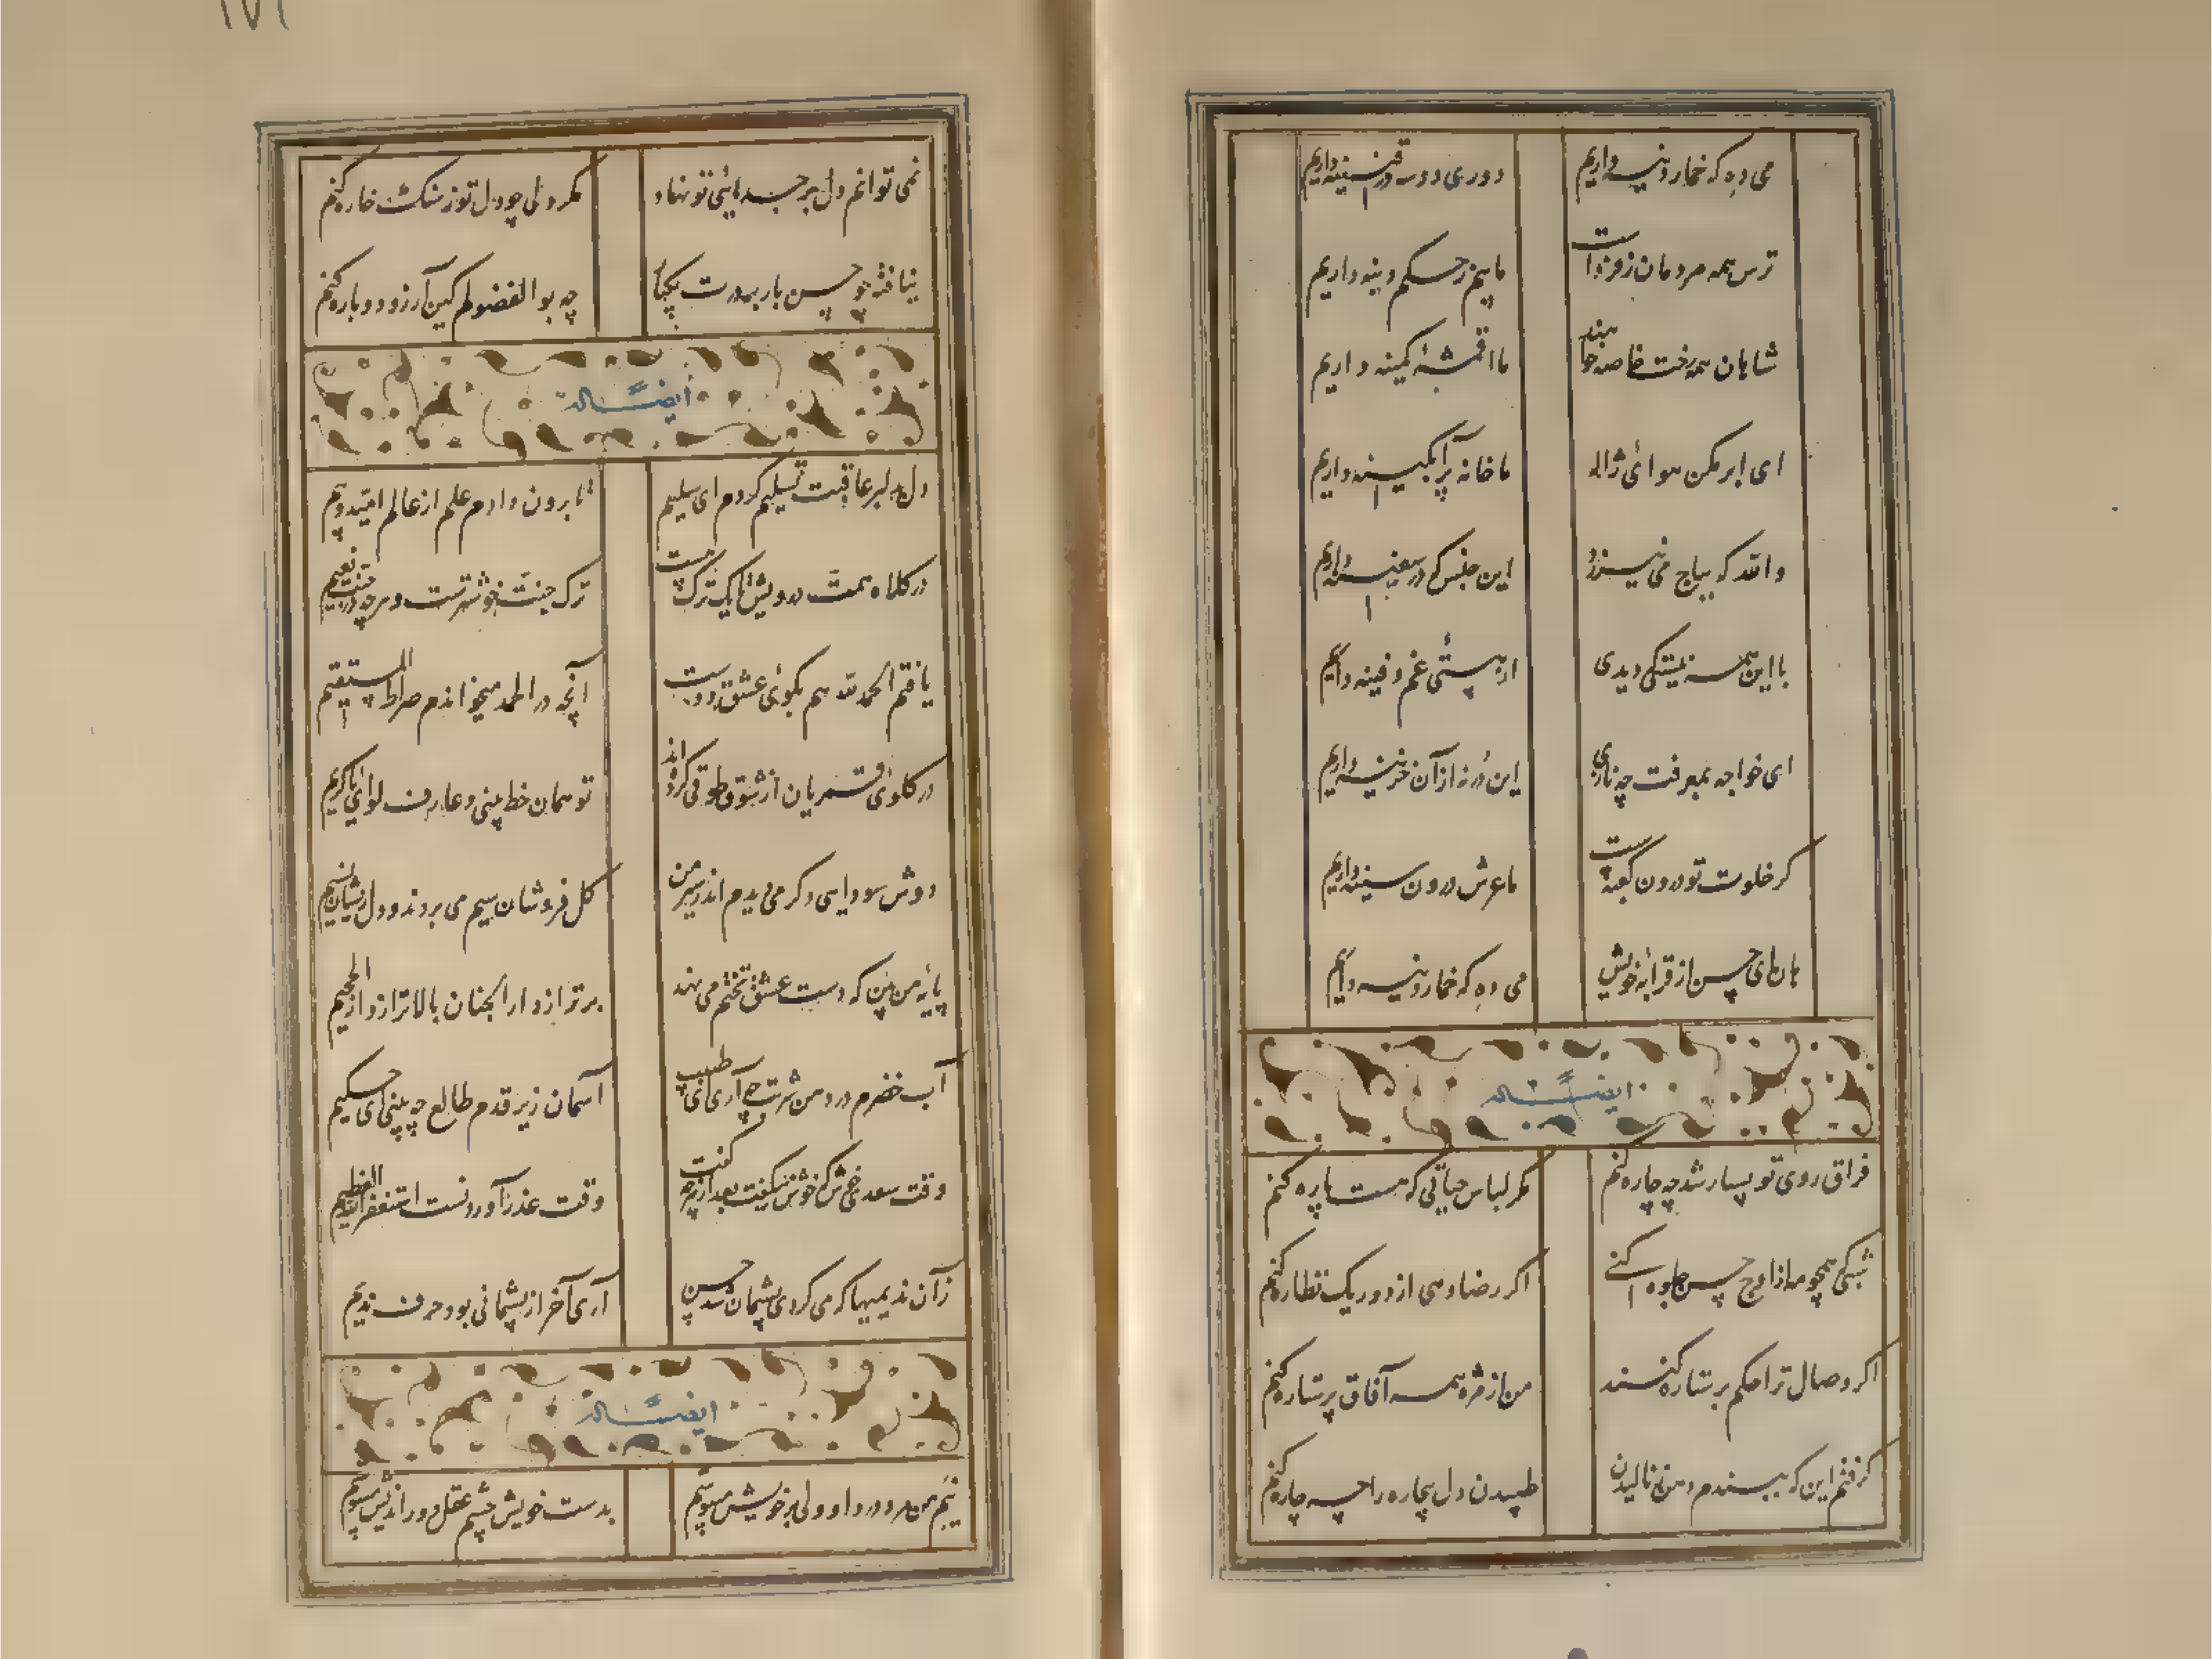 می ده که خمار دینه داریم
دوری دوسه در قنینه داریم
ترس همه مردمان ز فرداست
ما بیم ز حکم دینه داریم
شاهان همه رخت خاصه خواهند
ما اقمشهٔ کمینه داریم
ای ابر مکن هوائی ژاله
ما خانه پر آبگینه داریم
والله که بباج می نیرزد
این جنس که در سفینه داریم
با این همه نیستی که دیدی
از هستی غم دفینه داریم
ای خواجه بمعرفت چه نازی
این در نه از آن خزینه داریم
گر خلوت تو درون کعبه است
ما عرش درون سینه داریم
هان ای حسن از قرابهٔ خویش
می ده که خمار دینه داریم
ایضاً له
فراق روی تو بسیار شد چه چاره کنم
مگر لباس حیاتی که هست پاره کنم
شبکی همچو مه از اوج حسن جلوه کنی
اگر رضا دهی از دور یک نظاره کنم
اگر وصال ترا حکم بر ستاره کنند
من از مژه همه آفاق پر ستاره کنم
گرفتم این که ببندم دهن ز نالیدن
طپیدن دل بیچاره را چه چاره کنم
نمی توانم دل بر جدائی تو نهاد
مگر دلی چو دل تو ز سنگ خاره کنم
نیافته چو حسن بار بر درت یکبا
چه بوالفضولم کین آرزو دوباره کنم
ایضاً له
دل بدلبر عاقبت تسلیم کردم ای سلیم
تا برون دادم علم از عالم امید و بیم
در کلاه همت درویش ما یک ترک هست
ترک جنت خوشترست و هرچه در جنت نعیم
یافتم الحمدلله هم بکوئی عشق دوست
آنچه در الحمد میخواندم صراط المستقیم
در کلوئی قمریان از شوق طوقی کرده اند
تو همان خط بینی و عارف لوای یا کریم
دوش سودایی دگر می دیدم اندر سر من
گل فروشان سیم می بردند و دل نشان نسیم
پایهٔ من بین که دست عشق تختم می نهد
برتر از دار الجنان بالاتر از دار الجحیم
آب خضرم درد من شربت چه آری ای طبیب
آسمان زیر قدم طالع چه بینی ای حکیم
وقت سعدی خوش که خوش میگفت بعد از هرچه گفت
وقت عذر آوردنست استغفرالله العظیم
زآن ندیمیها که می کردی پشیمان شد حسن
آری آخر از پشیمانی بود حرف ندیم
ایضاً له
نیم من مرد درد او ولی بر خویش میپوشم
بدست خویش چشم عقل دور اندیش میپوشم